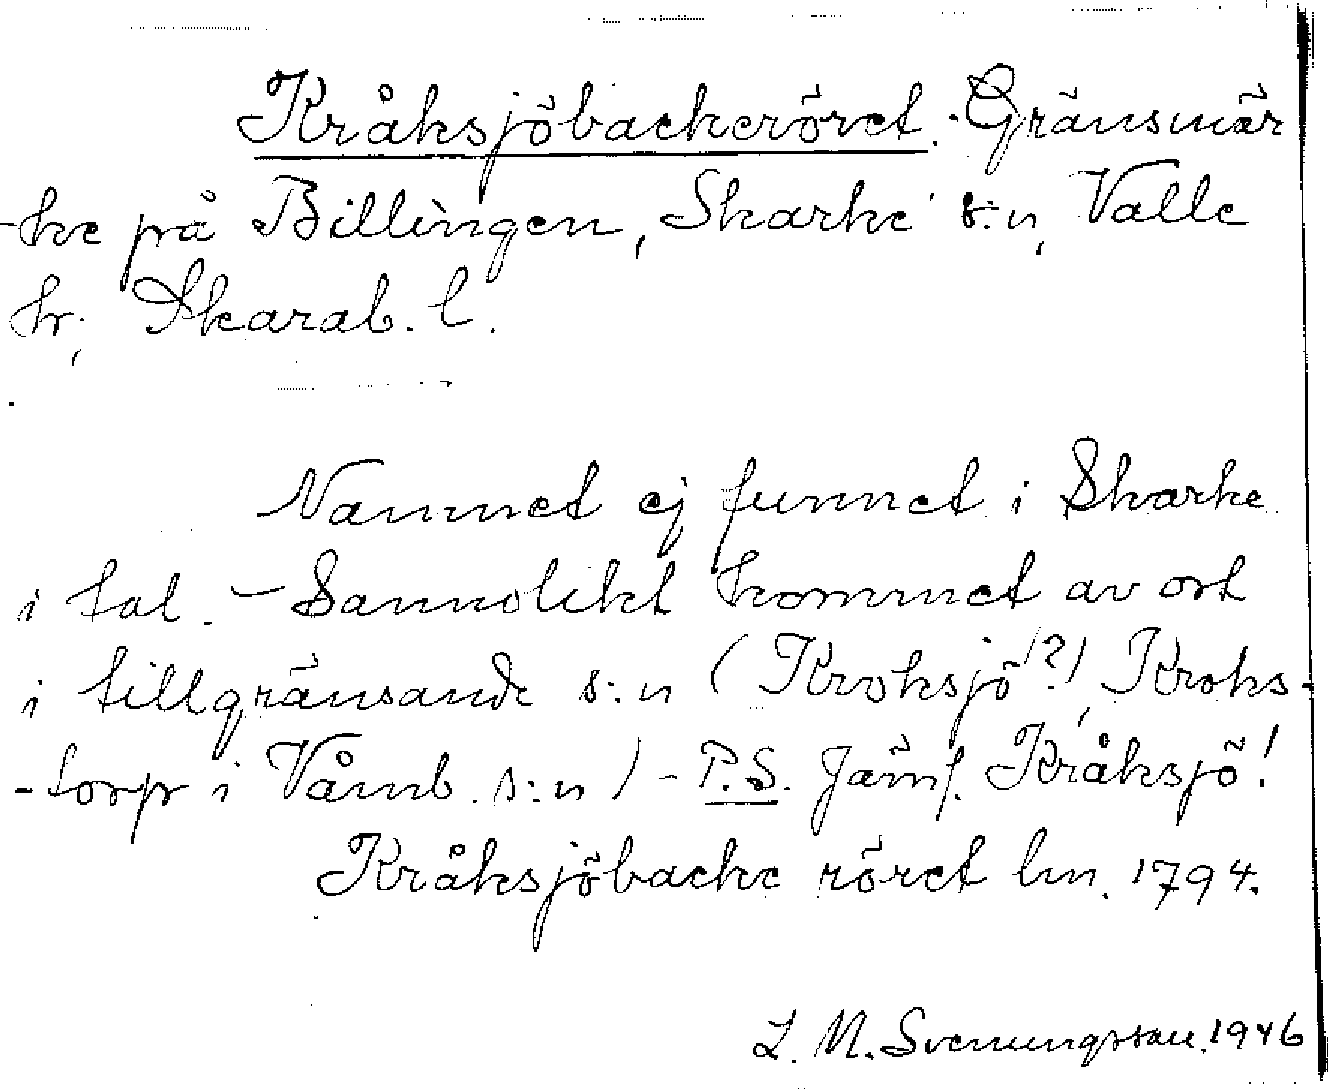 Kråksjöbackeröret. Gränsmär
-ke på Billingen, Skarke s:n, Valle
hr, Skarab. l.
Namnet ej funnet i Skarke
i tal. – Sannolikt kommet av ort
i tillgränsande s:n (Kroksjö(?), Kroks-
-torp i Våmb. s:n) – P.S. Jämf. Kråksjö!
Kråksjöbacke röret lm. 1794.
L. M. Svenungsson. 1946